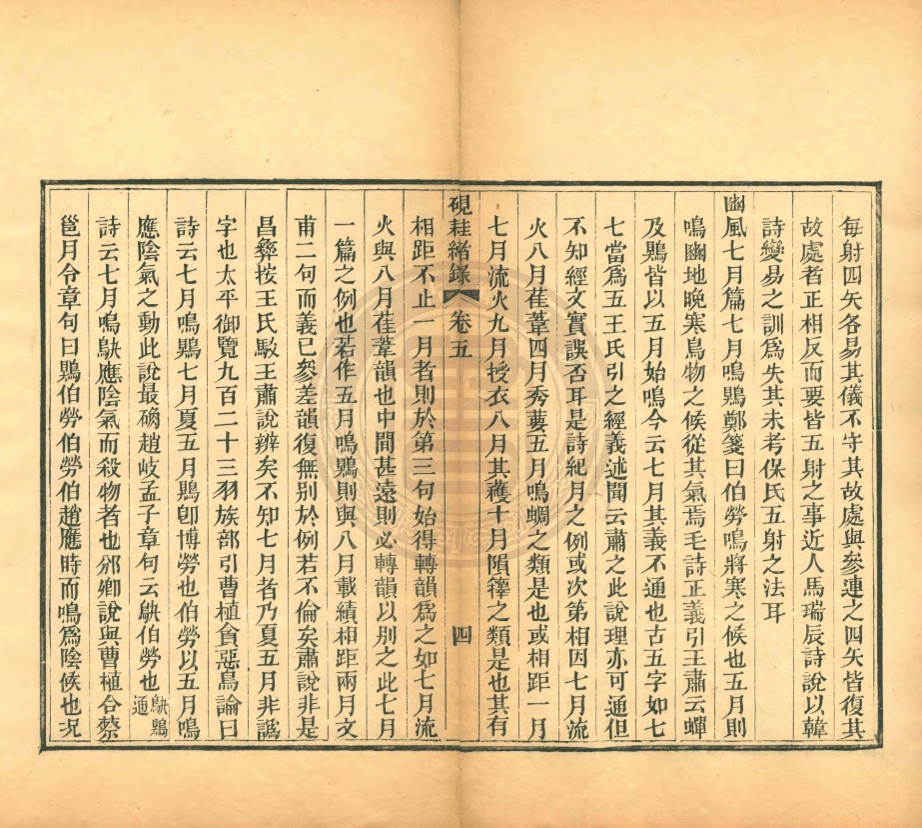 每射四矢各易其儀不守其故處與參連之四矢皆復其
故處者正相反而要皆五射之事近人馬瑞辰詩說以韓
詩變易之訓爲失其未考保氏五射之法耳
豳風七月篇七月鳴鵙鄭箋曰伯勞鳴將寒之候也五月則
鳴豳地晚寒鳥物之候從其氣焉毛詩正義引王肅云蟬
及鵙皆以五月始鳴今云七月其義不通也古五字如七
七當爲五王氏引之經義述聞云肅之此說理亦可通但
不知經文實誤否耳是詩紀月之例或次第相因七月流
火八月萑葦四月秀葽五月鳴蜩之類是也或相距一月
七月流火九月授衣八月其穫十月隕蘀之類是也其有
硯桂緒錄 卷五 四
相距不止一月者則於第三句始得轉韻爲之如七月流
火與八月萑葦韻也中間甚遠則必轉韻以別之此七月
一篇之例也若作五月鳴鵙則與八月載績相距兩月文
甫二句而義已參差韻復無別於例若不倫矣肅說非是
昌彝按王氏駁王肅說辨矣不知七月者乃夏五月非譌
字也太平御覽九百二十三羽族部引曹植貪惡鳥論曰
詩云七月鳴鵙七月夏五月鵙卽博勞也伯勞以五月鳴
應陰氣之動此說最礭趙岐孟子章句云鴃伯勞也鴃鵙通
詩云七月鳴鴃應陰氣而殺物者也邠卿說與曹植合蔡
邕月令章句曰鵙伯勞伯趙應時而鳴爲陰候也況